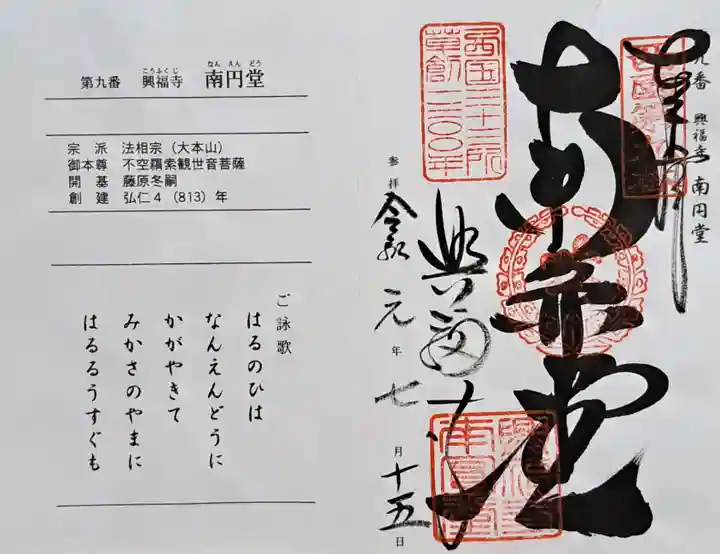 こうふくじ なん えん どう
第九番 興福寺 南円堂
宗 派 法相宗（大本山）
御本尊 不空羂索観世音菩薩
開 基 藤原冬嗣
創 建 弘仁４（813）年
ご詠歌
はるのひは
なんえんどうに
かがやきて
みかさのやまに
はるるうすぐも
九番 興福寺 南円堂
西国三十三所
草創一三〇〇年
南円堂
興福寺
参拝 令和元年七月十五日